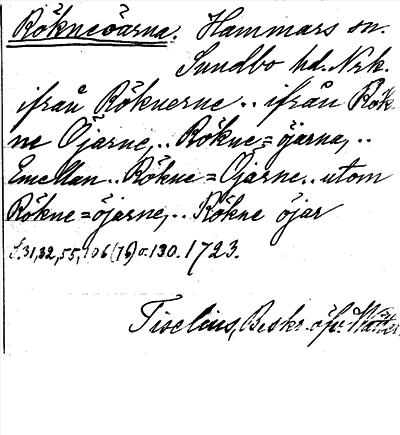 Rökneöarna. Hammars sn.
Sundbo hd. Nrk.
ifrån Röknerne.. ifrån Rök-
ne Öjarne,.. Rökne=öjarna,..
Emellan.. Rökne=Öjarne.. utom
Rökne=öjarne,.. Rökne öjar
S. 31, 32, 55, 106 (76) o. 130. 1723.
Tiselius, Beskr. öfr.